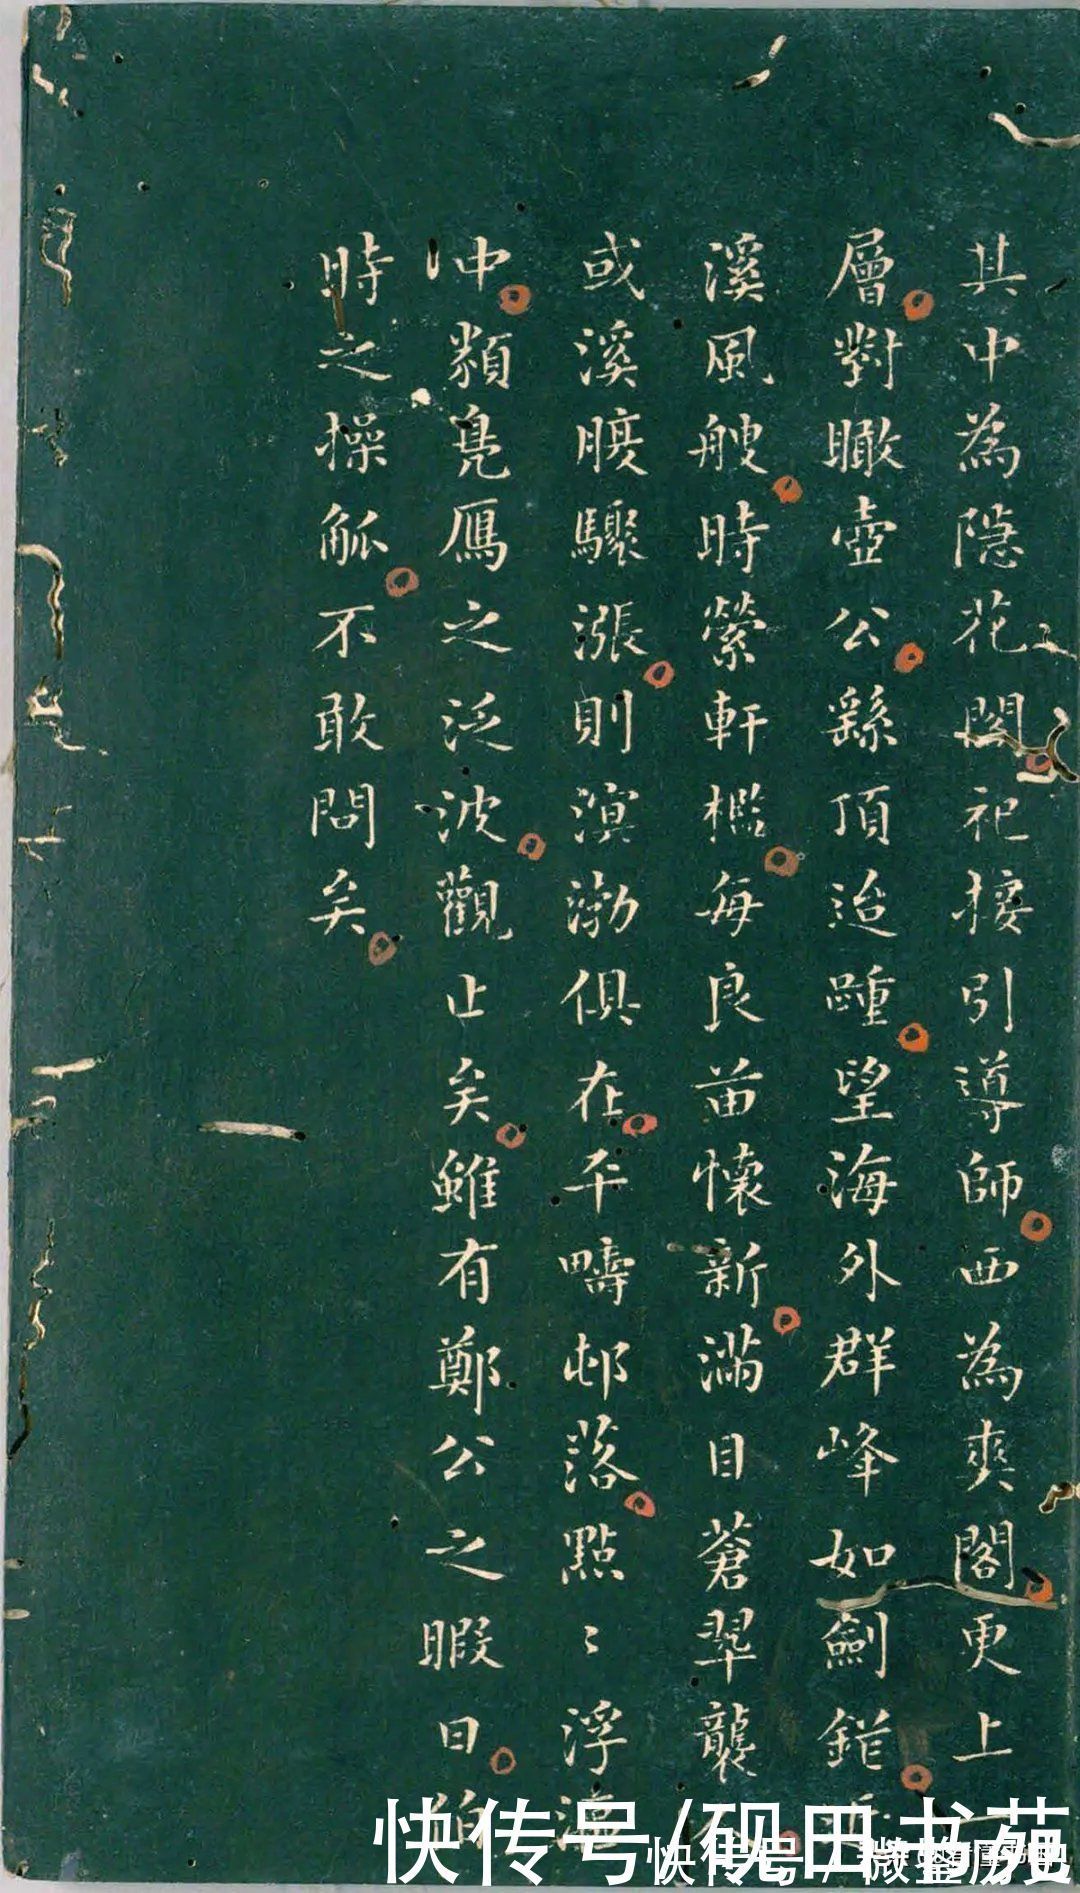 其中為隱花閣祀接引導師西為爽閣更上
層對瞰壺公繇頂迨踵望海外群峰如劍鋩
溪風艘時縈軒檻每良苗懷新滿目蒼翠襲
或溪腠驟漲則溟渤俱在平疇邨落點〻浮
冲類鳧鴈之泛波觀止矣雖有鄭公之暇日
時之操觚不敢問矣
快传号/砚田书苑